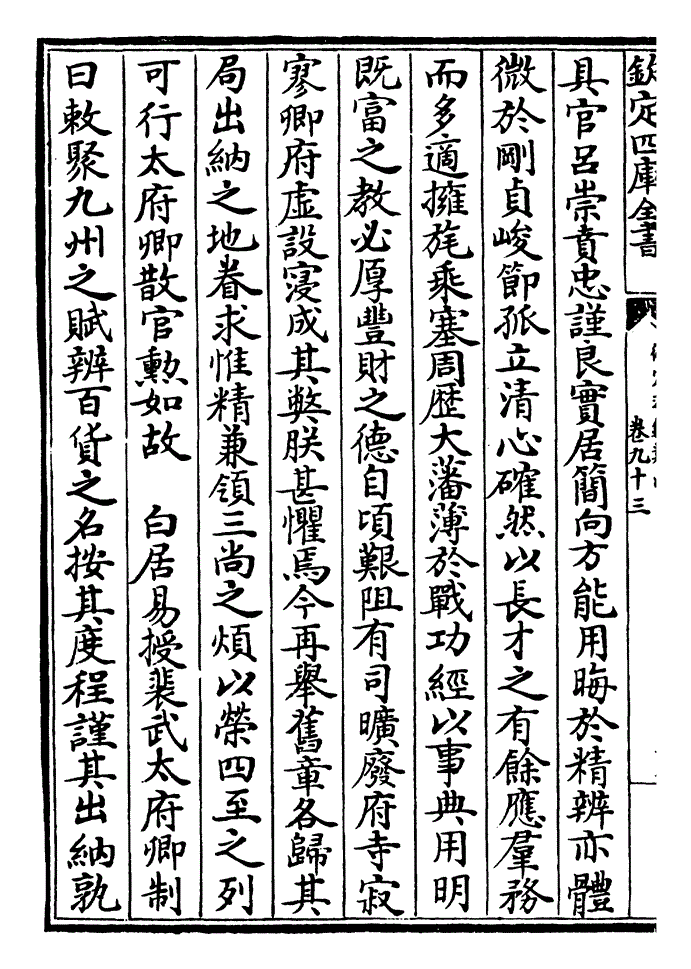 欽定四庫全書
卷九十三
具官呂崇賁忠謹良實居簡向方能用晦於精辨亦體
微於剛貞峻節孤立清心確然以長才之有餘應羣務
而多適擁旄乘塞周歴大藩薄於戰功經以事典用明
既富之教必厚豐財之德自頃艱阻有司曠廢府寺寂
寥卿府虛設寖成其弊朕甚懼焉今再舉舊章各歸其
局出納之地眷求惟精兼領三尚之煩以榮四至之列
可行太府卿散官勲如故　白居易授裴武太府卿制
曰敕聚九州之賦辨百貨之名按其度程謹其出納孰